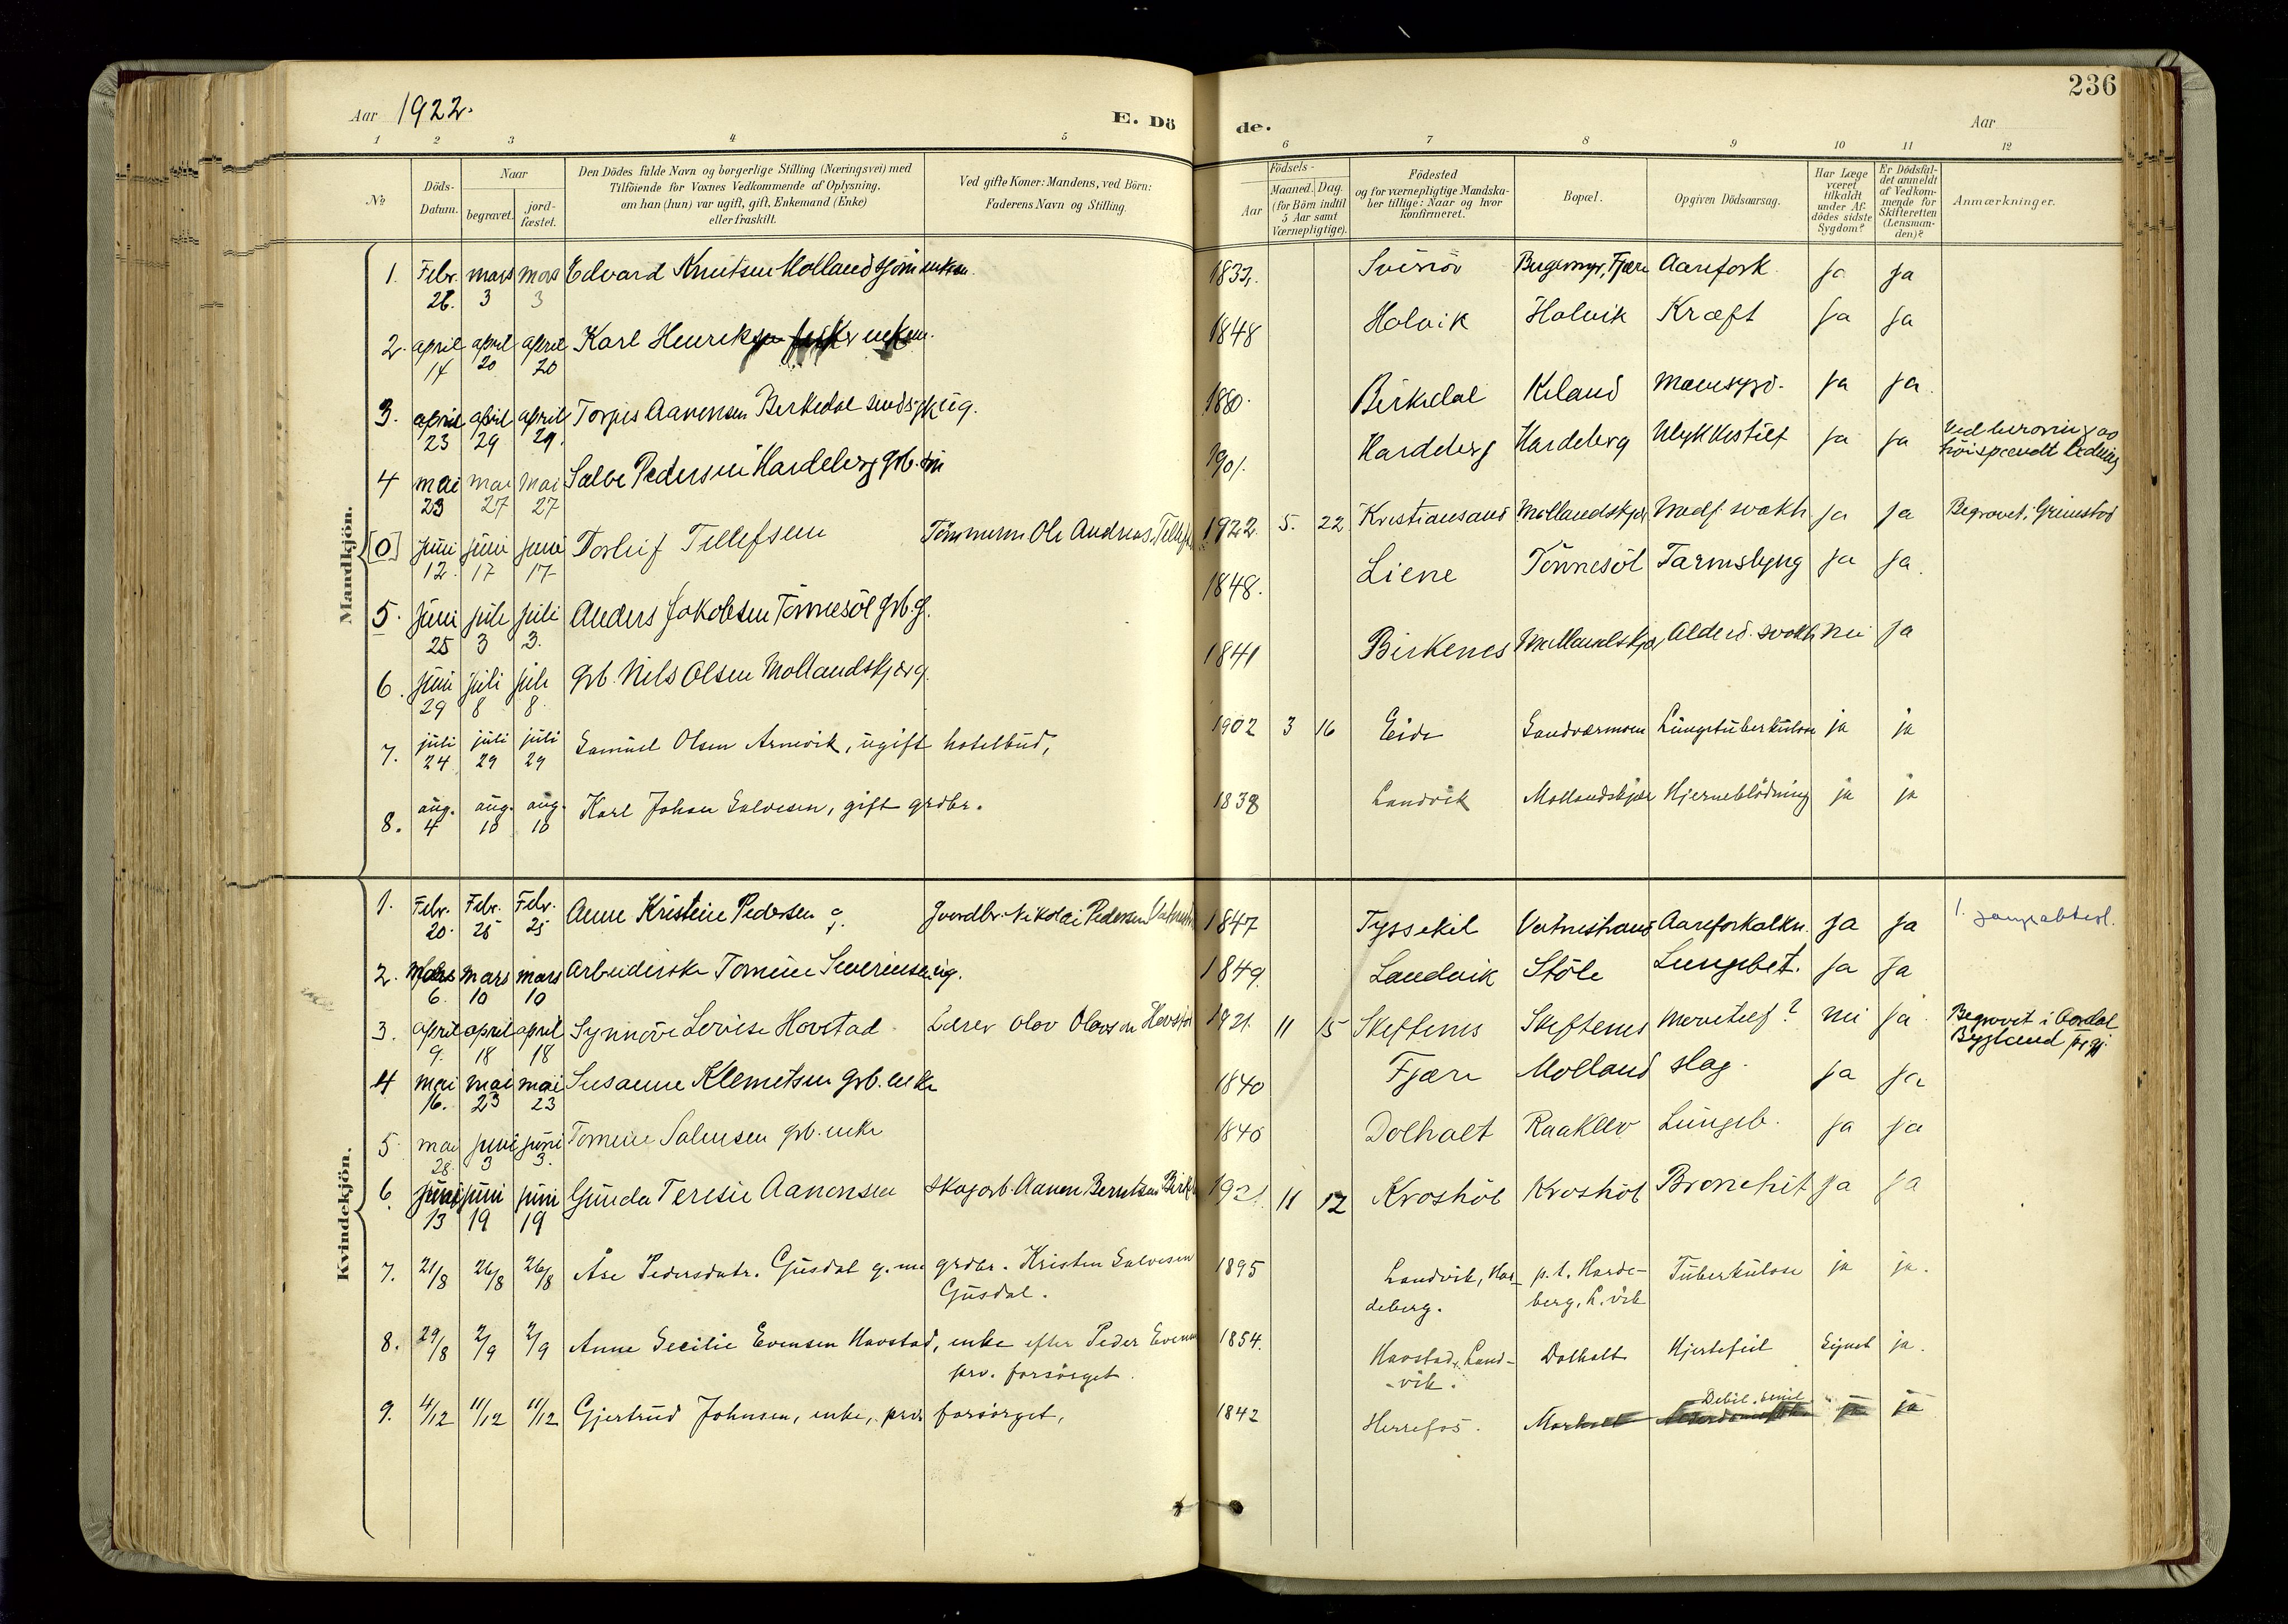 236
Aar 1922.
E. Dö de.
Aar
1 2 3 4 5 6 7 8 9 10 11 12
№
Döds-Datum.
Naar
begravet.
jord-fæstet.
Den Dödes fulde Navn og borgerlige Stilling (Næringsvei) med
Tilföiende for Voxnes Vedkommende af Oplysning,
om han (hun) var ugift, gift, Enkemand (Enke)
eller fraskilt.
Ved gifte Koner: Mandens, ved Börn:
Faderens Navn og Stilling.
Födsels-
Aar
Maaned. Dag.
(for Börn indtil
5 Aar samt
Værnepligtige).
Födested
og for værnepligtige Mandska-
ber tillige: Naar og hvor
konfirmeret.
Bopæl.
Opgiven Dödsaarsag.
Har Læge
været
tilkaldt
under Af-
dödes sidste
Sygdom?
Er Dödsfal-
det anmeldt
af Vedkom-
mende for
Skifteretten
(Lensman-
den)?
Anmærkninger.
Mandkjön.
1. Febr. 26. mars 3 mars 3 Edvard Knutsen Molland enkem. Fjære ja ja
2. april 14 april 20 april 20 Karl Henriksen enkem. 1848 Holvik Holvik Kræft ja ja
3. april 23 april 29 april 29. Torjus Aanensen Birkedal sindssyk ug. 1880. Birkedal Kiland ja ja.
4 mai 23 mai 27 mai 27 Salve Pedersen Hardeberg 1901. Hardeberg Hardeberg Ulykkestilf ja ja Ved beröring av
höispændt Ledning
[0] juni 12. juni 17 juni 17 Torleif Tellefsen Tömmerm Ole Andreas Tellefs 1922. 5. 22 Kristiansand Mollandskjær Medf. svakh ja ja Begravet i Grimstad
5. juni 25 juli 3 juli 3. Anders Jakobsen Tönnesöl grb. g. 1848. Liene Tönnesöl Tarmslyng ja ja.
6. juni 29 juli 8 juli 8. grb. Nils Olsen Mollandskjær g. 1841 Birkenes Mollandskjær Alderd. svakh nei ja
7. juli 24 juli 29 juli 29 Samuel Olsen Arnevik, ugift hotelbud, 1902 3 16 Eide Sandværmoen Lungetuberkulose ja ja
8. aug. 4 aug. 10 aug. 10 Karl Johan Salvesen, gift grdbr. 1838 Landvik Mollandskjær Hjerneblödning ja ja
Kvindekjön.
1. Febr. 20. Febr. 25 Febr. 25 Anne Kristine Pedersen g. Gaardbr. Nikolai Pedersen 1847 Tyssekil Vatnestrand Aareforkalkn. ja ja
2. mars 6. mars 10 mars 10 Arbeiderske Tomine Severinsen ug. 1849. Landvik Støle Lungebet. ja ja
3. april 9. april 18 april 18 Synnöve Lovise Hovstad Lærer Olav Olavsen Hovstad 1921. 11 15 Skiftenes Skiftenes ? nei ja Begravet i Aardal
Bygland prgj.
4 mai 16. mai 23 mai 23 Susanne Klemetsen grb. enke 1840 Fjære Molland slag. ja ja
5. mai 28. juni 3 juni 3. Tomine Salvesen grb. enke 1840 Dolholt Raaklev Lungeb. ja ja
6. juni 13 juni 19 juni 19 Gunda Teresie Aanensen skogarb. Aanen Berntsen 1921. 11 12 Kroshöl Kroshöl Bronchit ja ja
7. 21/8 26/8 26/8 Åse Pedersdatr. Gusdal g. m. grdbr. Kristen Salvesen
Gusdal. 1895 Landvik, Har-
deberg. p. t. Harde-
berg, L. vik Tuberkulose ja ja.
8. 29/8 2/9 2/9 Anne Secilie Evensen Havstad, enke efter Peder Evensen
prv. forsörget. 1854. Havstad, Land-
-vik. Dolholt Hjertefeil ja.
9. 4/12 11/12 11/12 Gjertrud Johnsen, enke, prv. forsörget, 1842 Herrefos. Debil. senil ja ja